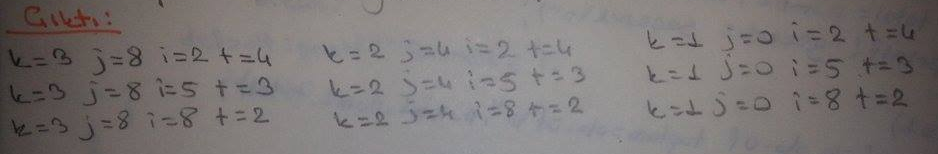 Çıktı:
k=3 j=8 i=2 t=4
k=3 j=8 i=5 t=3
k=3 j=8 i=8 t=2
k=2 j=4 i=2 t=4
k=2 j=4 i=5 t=3
k=2 j=4 i=8 t=2
k=1 j=0 i=2 t=4
k=1 j=0 i=5 t=3
k=1 j=0 i=8 t=2